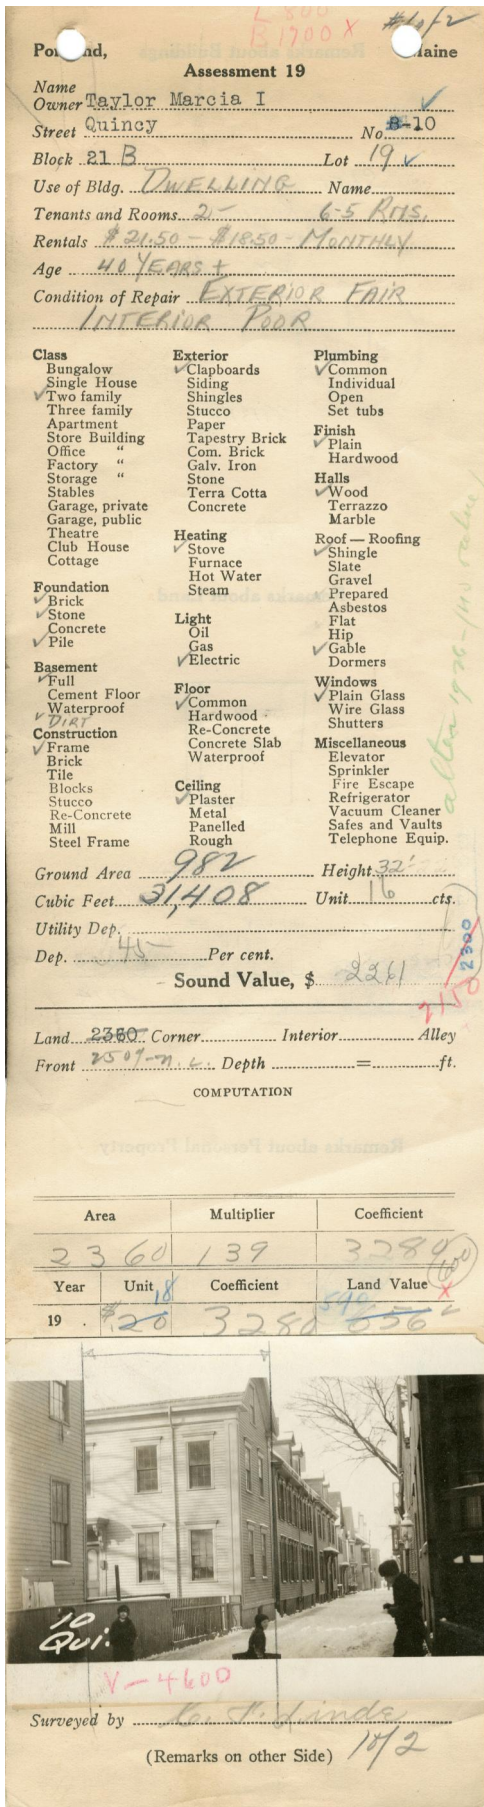 L 800
B 1700 X
#1 of 2
Portland, Maine
Assessment 19
Name
Owner Taylor Marcia I
Street Quincy No. 8-10
Block 21 B Lot 19
Use of Bldg. DWELLING Name
Tenants and Rooms 2- 6-5 RMS.
Rentals $21.50 - $18.50 - MONTHLY
Age 40 YEARS +
Condition of Repair EXTERIOR FAIR
INTERIOR POOR
Class
Bungalow
Single House
Two family
Three family
Apartment
Store Building
Office "
Factory "
Storage "
Stables
Garage, private
Garage, public
Theatre
Club House
Cottage
Foundation
Brick
Stone
Concrete
Pile
Basement
Full
Cement Floor
Waterproof
DIRT
Construction
Frame
Brick
Tile
Blocks
Stucco
Re-Concrete
Mill
Steel Frame
Exterior
Clapboards
Siding
Shingles
Stucco
Paper
Tapestry Brick
Com. Brick
Galv. Iron
Stone
Terra Cotta
Concrete
Heating
Stove
Furnace
Hot Water
Steam
Light
Oil
Gas
Electric
Floor
Common
Hardwood
Re-Concrete
Concrete Slab
Waterproof
Ceiling
Plaster
Metal
Panelled
Rough
Plumbing
Common
Individual
Open
Set tubs
Finish
Plain
Hardwood
Halls
Wood
Terrazzo
Marble
Roof — Roofing
Shingle
Slate
Gravel
Prepared
Asbestos
Flat
Hip
Gable
Dormers
Windows
Plain Glass
Wire Glass
Shutters
Miscellaneous
Elevator
Sprinkler
Fire Escape
Refrigerator
Vacuum Cleaner
Safes and Vaults
Telephone Equip.
Ground Area 982 Height 32'
Cubic Feet 31,408 Unit 16 cts.
Utility Dep.
Dep. 45- Per cent.
Sound Value, $ 2261
2300
2150
Land 2360 Corner Interior Alley
Front Depth = ft.
COMPUTATION
Area Multiplier Coefficient
2360 139 3280
600
Year Unit Coefficient Land Value
18 590
19 . $20 3280 656
10
Qui.
V-4600
Surveyed by
(Remarks on other Side) 1 of 2